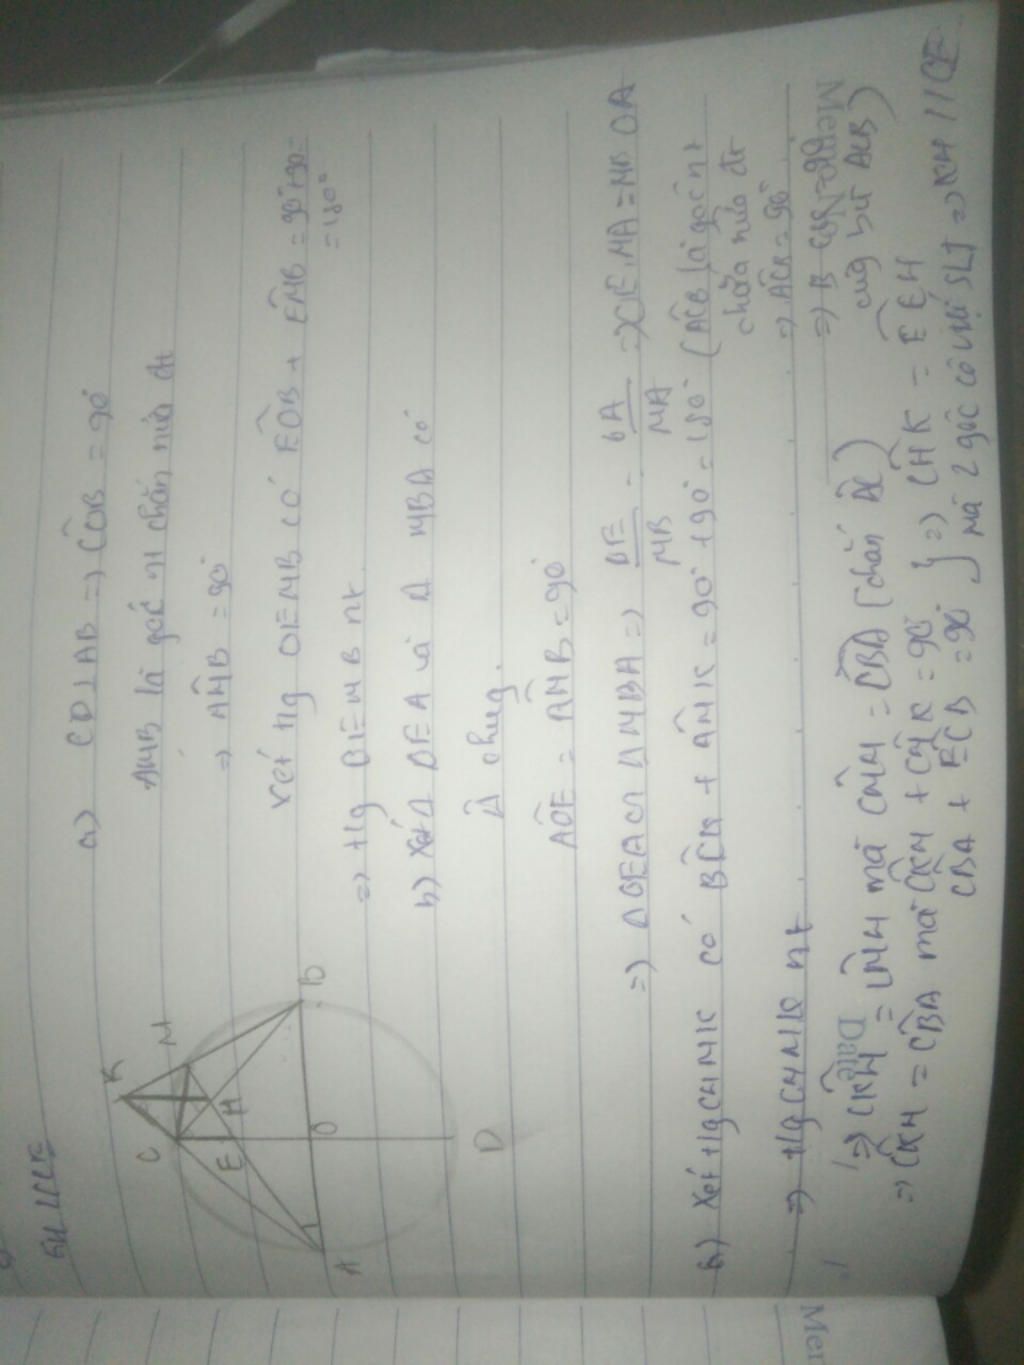 a) CD⊥AB => CÔB = 90°
AMB là góc nt chắn nửa đt
=> AMB = 90°
xét tg OEMB có EOB + EMB = 90°+90°
= 180°
=> tg OEMB nt
b) Xét Δ OEA và Δ MBA có
A chung
AOE = AMB = 90°
=> ΔOEA ∽ ΔMBA => OE/MB = OA/MA => OE.MA = MB.OA
b) Xét tg CHMK có BCK + AMK = 90° + 90° = 180° (ACB là góc nt
chắn nửa đt
=> ACB = 90°
=> tg CHMK nt
cùng bù ACB)
Date
=> CKH = CMH mà CMH = CBA (chắn AC)
=> CKH = CBA mà CKH + CHK = 90°
CBA + ECB = 90° } => CHK = ECH
mà 2 góc có vị trí SLT => KH // CE
C
K
M
E
H
A
O
B
D